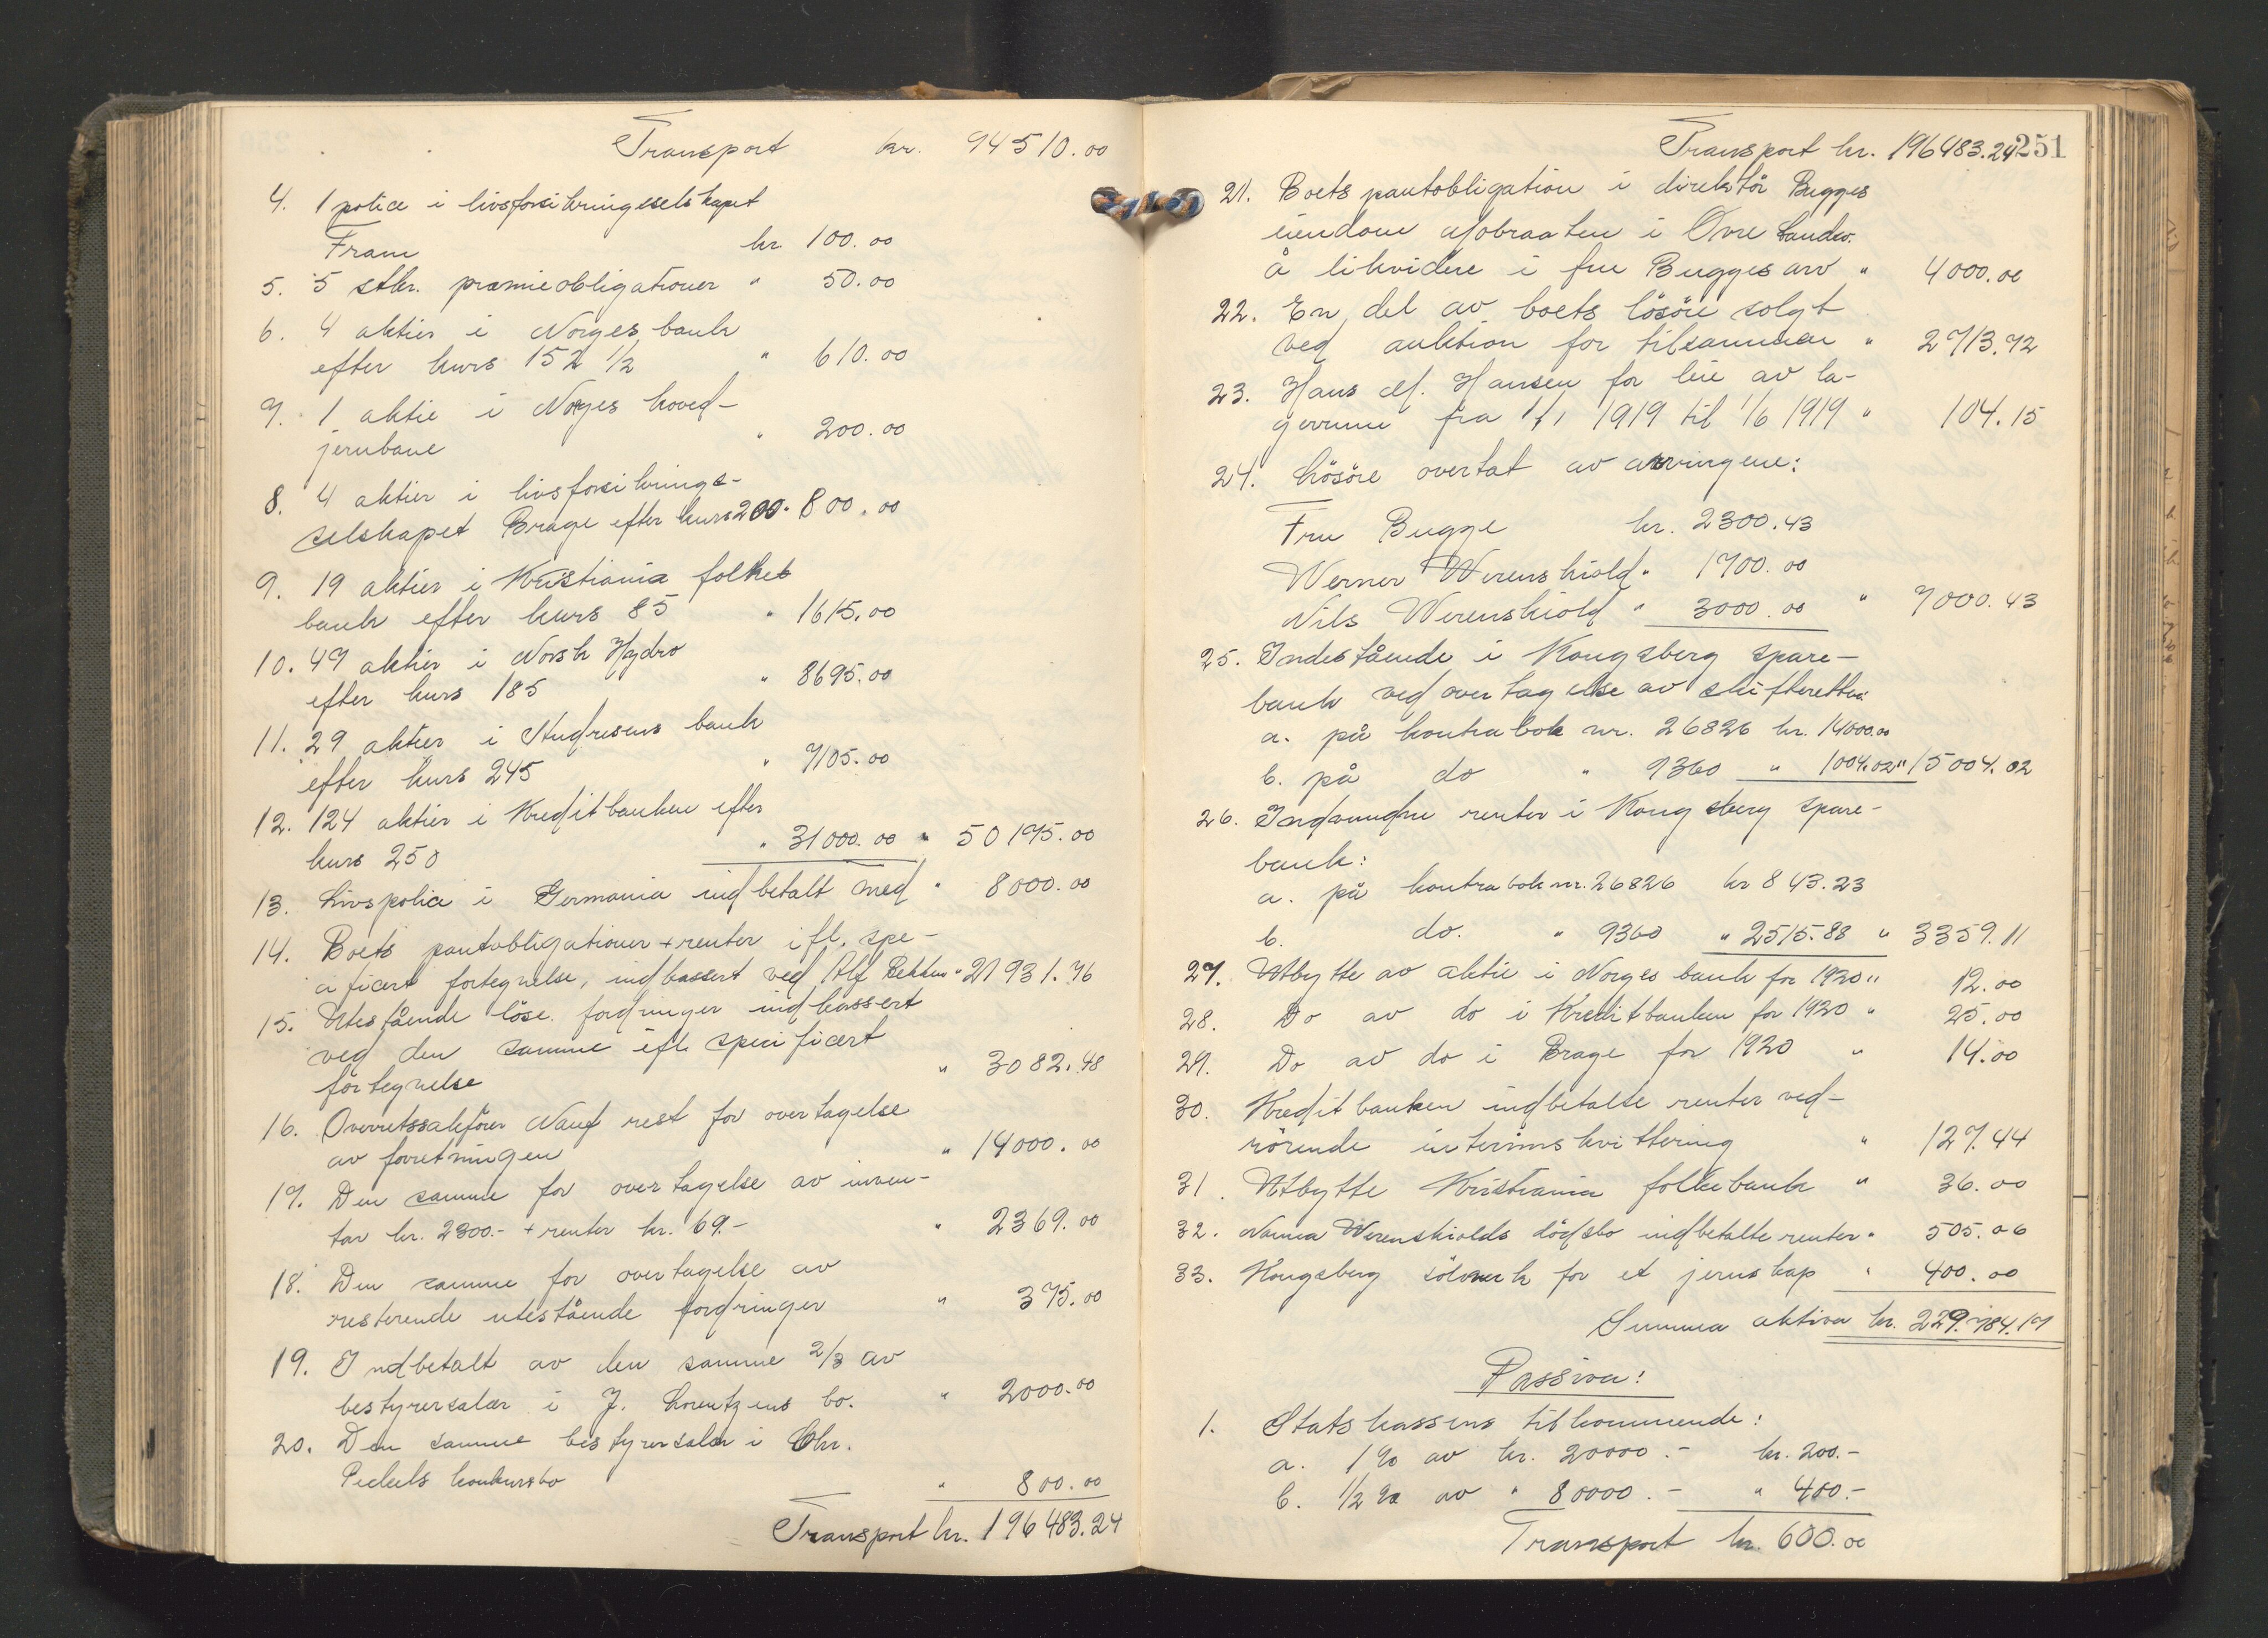 Transport kr. 94510.00
4. 1 police i livsforsikringsselskapet
Fram kr 100.00
5. 5 stkr. præmieobligationer " 50.00
6. 4 aktier i Norges bank
efter kurs 152 1/2 " 610.00
7. 1 aktie i Norges hoved-
jernbane " 200.00
8. 4 aktier i livsforsikrings-
selskapet Brage efter kurs 200 " 800.00
9. 19 aktier i Kristiania folke
bank efter kurs 85 " 1615.00
10. 47 aktier i Norsk Hydro
efter kurs 185 " 8695.00
11. 29 aktier i Andresens bank
efter kurs 245 " 7105.00
12. 124 aktier i Kreditbanken efter
kurs 250 " 31000.00 " 50175.00
13. Livspolice i Germania indbetalt med " 8000.00
14. Boets pantobligationer + renter ifl. spe-
cificert fortegnelse, indkassert ved Alf Bekken " 21931.76
15. Utestående löse fordringer indkassert
ved den samme ifl. specificert
fortegnelse " 3082.48
16. Overretssakfører Nauf rest for overtagelse
av forretningen " 14000.00
17. Den samme for overtagelse av inven-
tar kr. 2300.- + renter kr. 69.- " 2369.00
18. Den samme for overtagelse av
resterende utestående fordringer " 375.00
19. Indbetalt av den samme 2/3 av
bestyrersalær i J. Lorentzens bo. " 2000.00
20. Den samme bestyrersalær i Chr.
konkursbo " 800.00
Transport kr. 196483.24
251
Transport kr. 196483.24
21. Boets pantobligation i direktör Bugges
eiendom Mobraaten i Övre Sandsv.
å likvidere i fru Bugges arv " 4000.00
22. En del av boets lösöre solgt
ved auktion for tilsammen " 2713.72
23. Hans M. Hansen for leie av la-
gerrum fra 1/1 1919 til 1/6 1919 " 104.15
24. Lösöre overtat av arvingene:
Fru Bugge kr. 2300.43
Werner Werenskiold " 1700.00
Nils Werenskiold " 3000.00 " 7000.43
25. Indestående i Kongsberg spare-
bank ved overtagelse av skifteretten:
a. på kontrabok nr. 26826 kr. 14000.00
b. på do " 9360 " 1004.02 " 15004.02
26. Indvundne renter i Kongsberg spare-
bank:
a. på kontrabok nr. 26826 kr 843.23
b. do. " 9360 " 2515.88 " 3359.11
27. Utbytte av aktie i Norges bank for 1920 " 12.00
28. Do av do i Kreditbanken for 1920 " 25.00
29. Do av do i Brage for 1920 " 14.00
30. Kreditbanken indbetalte renter ved-
rörende interimskvittering " 127.44
31. Utbytte Kristiania folkebank " 36.00
32. Nanna Werenskiolds dödsbo indbetalte renter " 505.06
33. Kongsberg sölvverk for et jernskap " 400.00
Summa aktiva kr. 229.784.17
Passiva:
1. Statskassens tilkommende:
a. 1 % av kr. 20000.- kr. 200.-
b. 1/2 % av " 80000.- " 400.-
Transport kr. 600.00